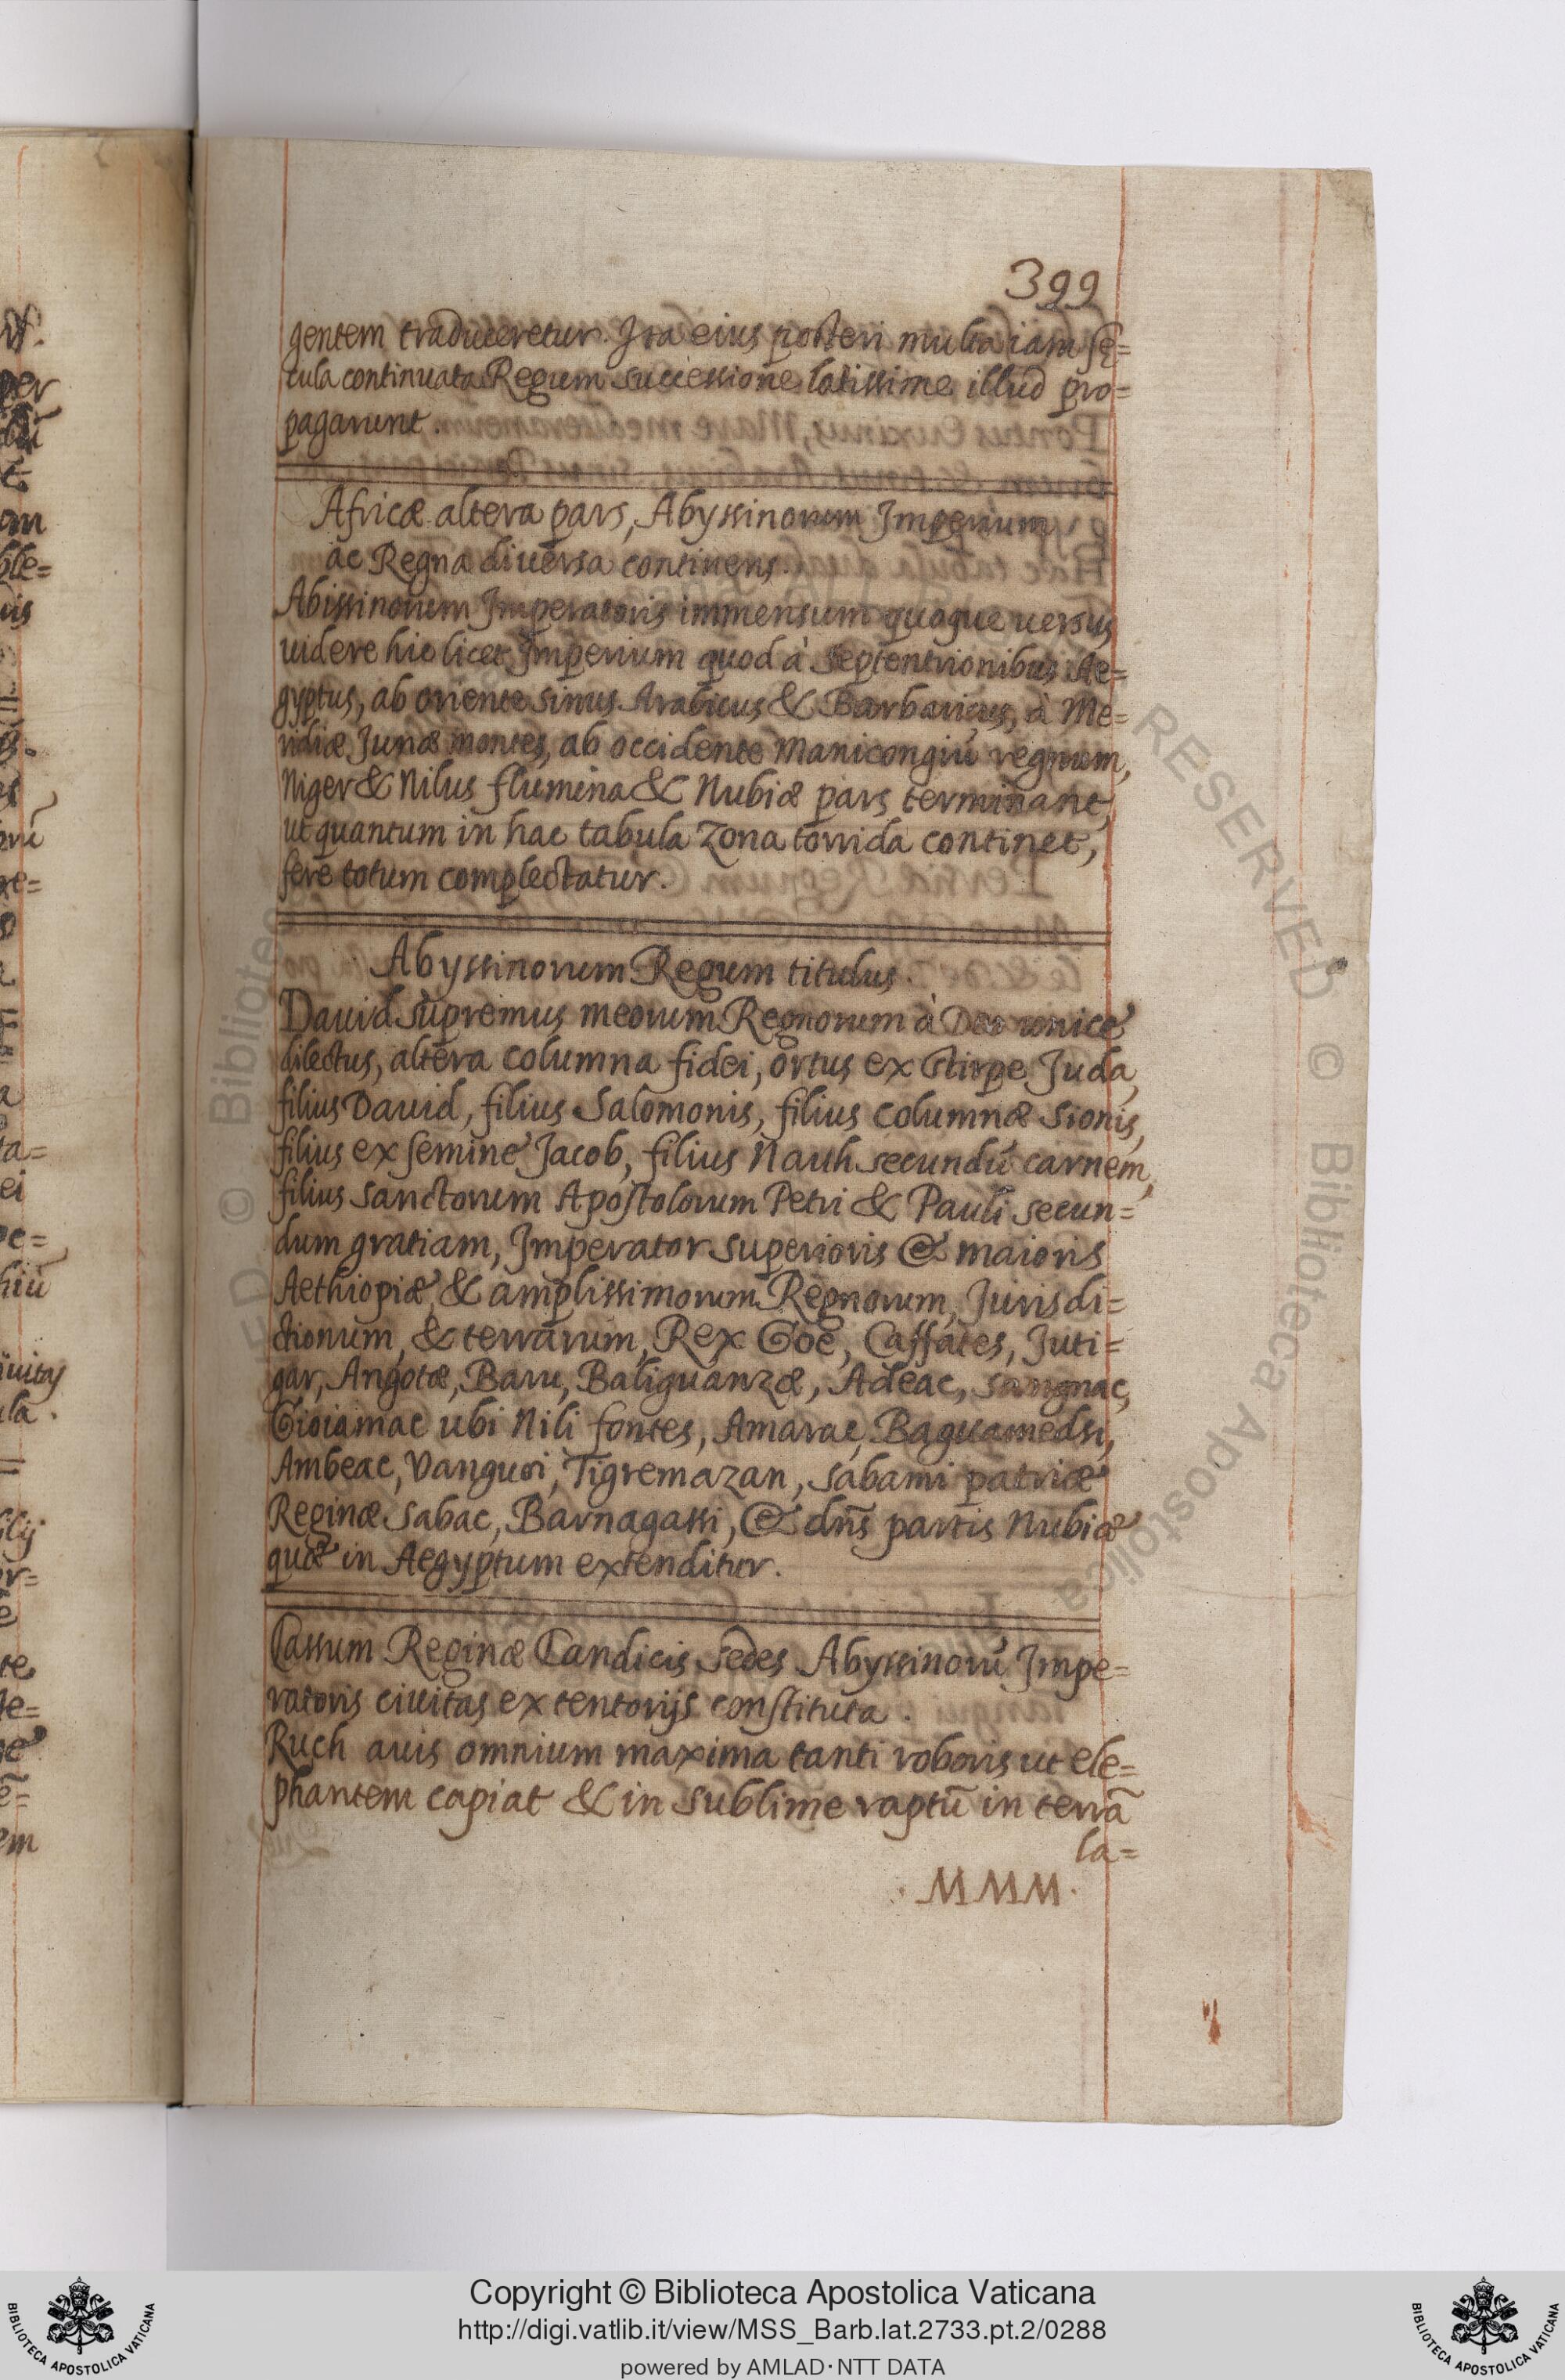 399
gentem traduceretur. Ita eius posteri multa iam se=
cula continuata Regum successione latissime illud pro=
pagarunt.
Africæ altera pars, Abyssinorum Imperium
ac Regna diuersa continens.
Abissinorum Imperatoris immensum quoque uersus
uidere hic licet Imperium quod à septentrionibus Ae=
gyptus, ab oriente sinus Arabicus & Barbaricus, à Me=
ridiæ Junæ montes, ab occidente Manicongiũ regnum,
Niger & Nilus flumina & Nubiæ pars terminant,
ut quantum in hac tabula Zona torrida continet,
fere totum complectatur.
Abyssinorum Regum titulus.
Dauid supremus meorum Regnorum à Deo unice
dilectus, altera columna fidei, ortus ex stirpe Juda,
filius Dauid, filius Salomonis, filius columnæ Sionis,
filius ex semine Jacob, filius Nauh secundũ carnem,
filius sanctorum Apostolorum Petri & Pauli secun=
dum gratiam, Imperator superioris & maioris
Aethiopiæ, & amplissimorum Regnorum, Jurisdi=
ctionum, & terrarum, Rex Goe, Caffates, Juti=
gar, Angotæ, Baru, Baliguanzæ, Adeae, Sangnae,
Gioiamae ubi Nili fontes, Amarae, Baguamedsi,
Ambeae, Vangusi, Tigremazan, Sabami patriæ
Reginæ Sabae, Barnagassi, & dñs partis Nubiæ
quæ in Aegyptum extenditur.
Cassum Reginæ Candicis sedes Abyssinorũ Impe=
ratoris ciuitas ex tentorijs constituta.
Ruch auis omnium maxima tanti roboris ut ele=
phantem capiat & in sublime raptũ in terrã
la=
MMM.
© Biblioteca
RESERVED © Biblioteca Apostolica
Copyright © Biblioteca Apostolica Vaticana
http://digi.vatlib.it/view/MSS_Barb.lat.2733.pt.2/0288
powered by AMLAD·NTT DATA
BIBLIOTECA APOSTOLICA VATICANA
BIBLIOTECA APOSTOLICA VATICANA